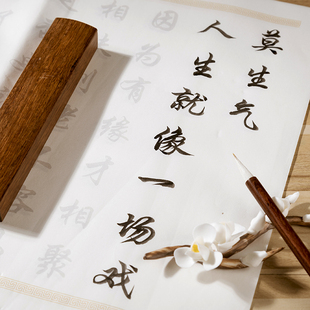 莫生气
人生就像一场戏
因为有缘才相聚